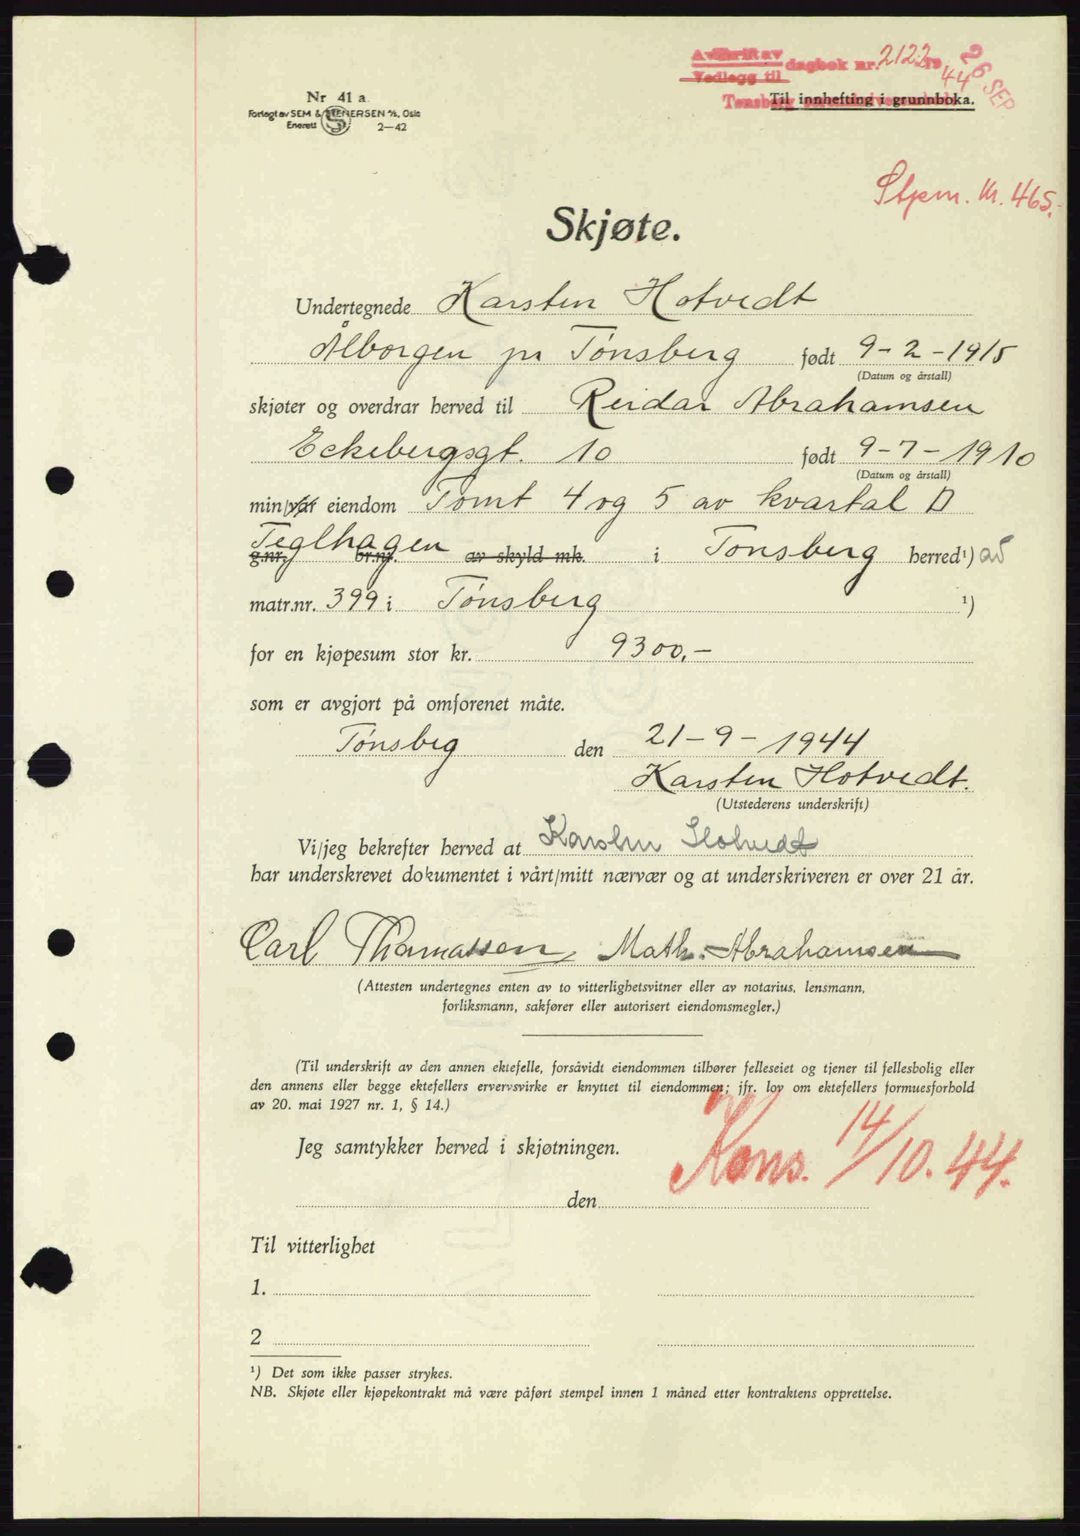 Avskrift av
Vedlegg til dagbok nr. 2122 19 44 26 SEP
Tønsberg
Til innhefting i grunnboka.
Nr 41 a.
Forlagt av SEM & STENERSEN A/S, Oslo
Enerett 2-42
Stpm. kr. 465.-
Skjøte.
Undertegnede Karsten Hotvedt
Ålborgen pr Tønsberg født 9-2-1915
(Datum og årstall)
skjøter og overdrar herved til Reidar Abrahamsen
Eckebergsgt. 10 født 9-7-1910
(Datum og årstall)
min/vår eiendom Tomt 4 og 5 av kvartal D
Teglhagen g.nr. br.nr. av skyld mk. i Tønsberg herred¹) av
matr.nr. 399 i Tønsberg ¹)
for en kjøpesum stor kr. 9300,-
som er avgjort på omforenet måte.
Tønsbeg den 21-9-1944
Karsten Hotvedt.
(Utstederens underskrift)
Vi/jeg bekrefter herved at Karsten Hotvedt
har underskrevet dokumentet i vårt/mitt nærvær og at underskriveren er over 21 år.
Carl Thomassen, Math. Abrahamsen
(Attesten undertegnes enten av to vitterlighetsvitner eller av notarius, lensmann,
forliksmann, sakfører eller autorisert eiendomsmegler.)
(Til underskrift av den annen ektefelle, forsåvidt eiendommen tilhører felleseiet og tjener til fellesbolig eller
den annens eller begge ektefellers ervervsvirke er knyttet til eiendommen; jfr. lov om ektefellers formuesforhold
av 20. mai 1927 nr. 1, § 14.)
Jeg samtykker herved i skjøtningen.
Kons. 14/10. 44.
den
Til vitterlighet
1.
2
¹) Det som ikke passer strykes.
NB. Skjøte eller kjøpekontrakt må være påført stempel innen 1 måned etter kontraktens opprettelse.